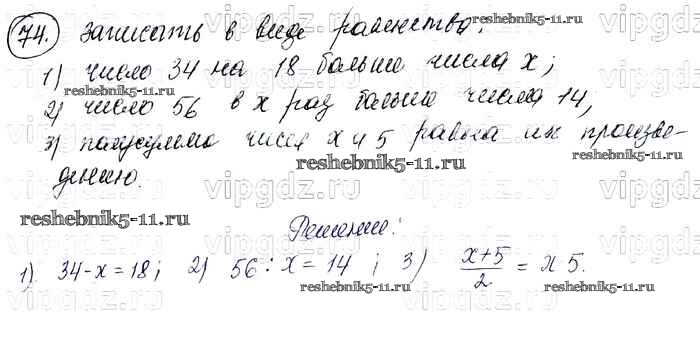 74. Записать в виде равенства:
1) число 34 на 18 больше числа x;
2) число 56 в x раз больше числа 14;
3) полусумма чисел x и 5 равна их произве-
дению.
Решение:
1). 34-x=18; 2) 56:x=14 ; 3) \frac{x+5}{2} = x5.
vipgdz.ru
reshebnik5-11.ru